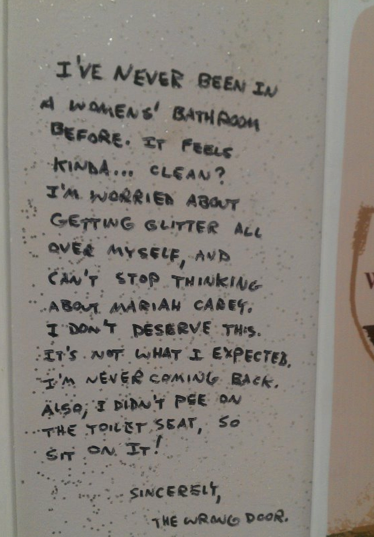 I'VE NEVER BEEN IN
A WOMENS' BATHROOM
BEFORE. IT FEELS
KINDA... CLEAN?
I'M WORRIED ABOUT
GETTING GLITTER ALL
OVER MYSELF, AND
CAN'T STOP THINKING
ABOUT MARIAH CAREY.
I DON'T DESERVE THIS.
IT'S NOT WHAT I EXPECTED.
I'M NEVER COMING BACK.
ALSO, I DIDN'T PEE ON
THE TOILET SEAT, SO
SIT ON IT!
SINCERELY,
THE WRONG DOOR.